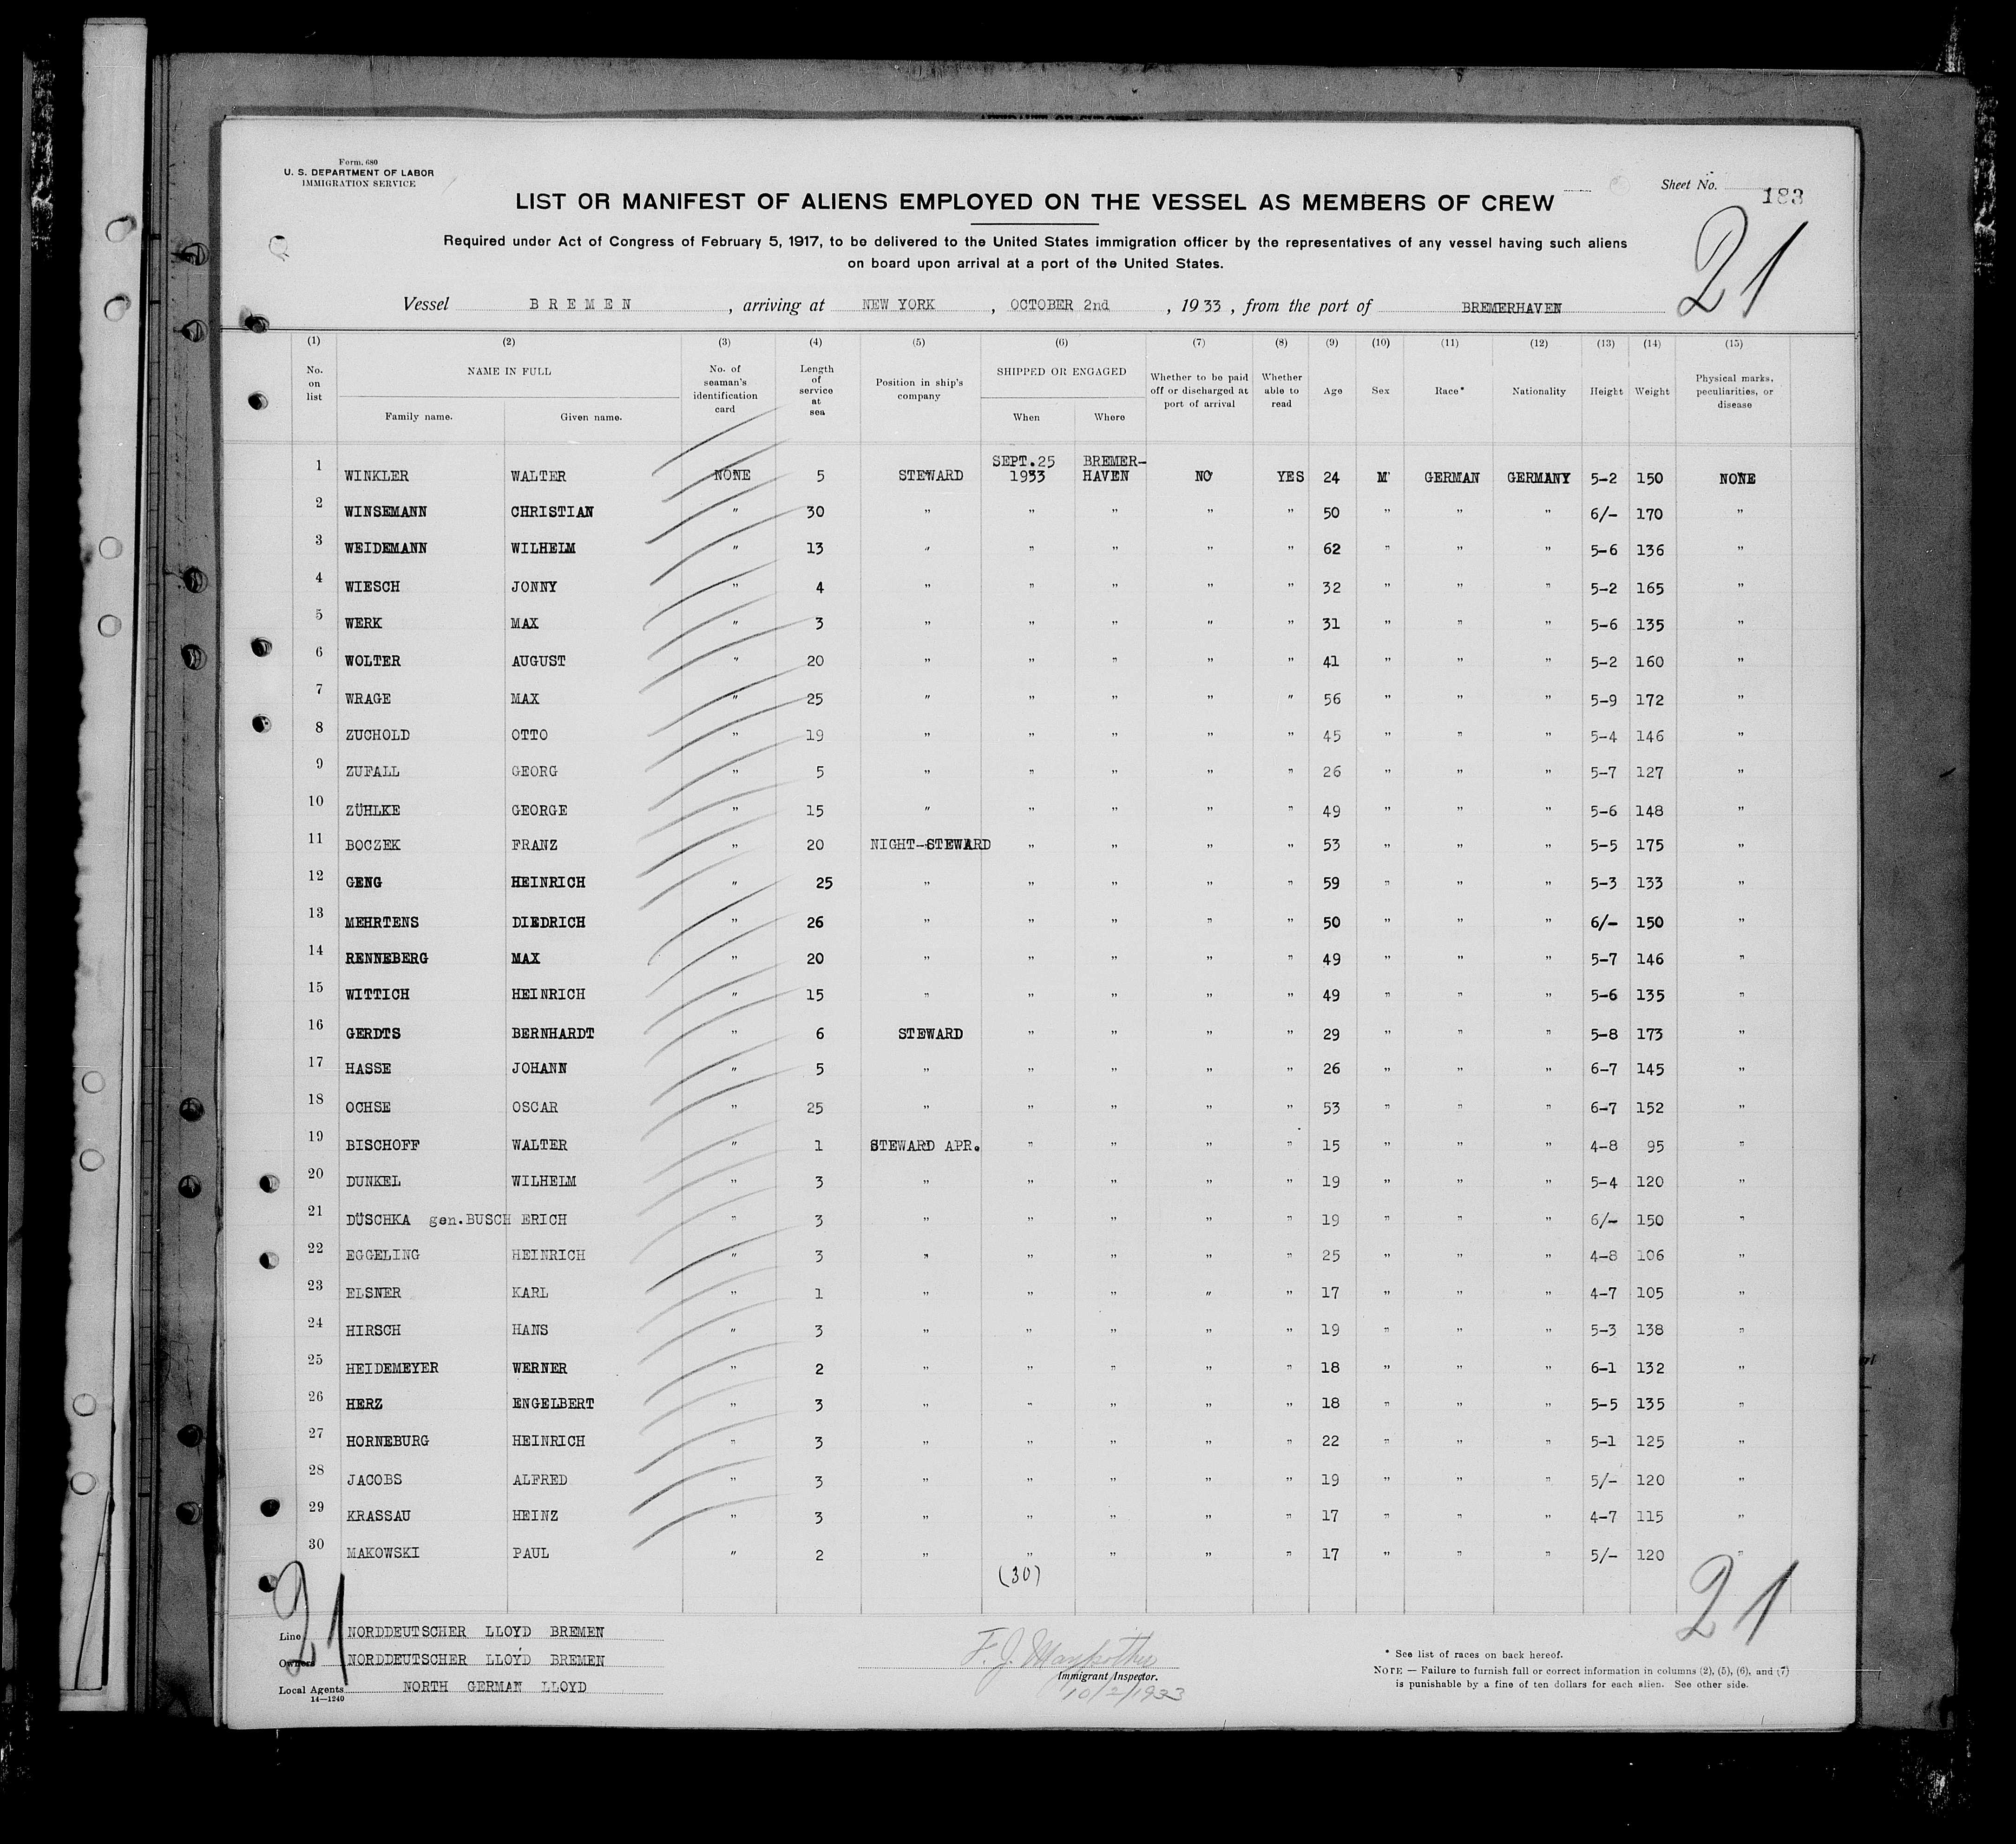 Form. 680
U. S. DEPARTMENT OF LABOR
IMMIGRATION SERVICE
Sheet No. 183
21
LIST OR MANIFEST OF ALIENS EMPLOYED ON THE VESSEL AS MEMBERS OF CREW
Required under Act of Congress of February 5, 1917, to be delivered to the United States immigration officer by the representatives of any vessel having such aliens
on board upon arrival at a port of the United States.
Vessel BREMEN, arriving at NEW YORK, OCTOBER 2nd, 1933, from the port of BREMERHAVEN
(1) (2) (3) (4) (5) (6) (7) (8) (9) (10) (11) (12) (13) (14) (15)
No. on list NAME IN FULL Family name. Given name. No. of seaman's identification card Length of service at sea Position in ship's company SHIPPED OR ENGAGED When Where Whether to be paid off or discharged at port of arrival Whether able to read Age Sex Race* Nationality Height Weight Physical marks, peculiarities, or disease
1 WINKLER WALTER NONE 5 STEWARD SEPT.25 1933 BREMER-HAVEN NO YES 24 M GERMAN GERMANY 5-2 150 NONE
2 WINSEMANN CHRISTIAN " 30 " " " " " 50 " " " 6/- 170 "
3 WEIDEMANN WILHELM " 13 " " " " " 62 " " " 5-6 136 "
4 WIESCH JONNY " 4 " " " " " 32 " " " 5-2 165 "
5 WERK MAX " 3 " " " " " 31 " " " 5-6 135 "
6 WOLTER AUGUST " 20 " " " " " 41 " " " 5-2 160 "
7 WRAGE MAX " 25 " " " " " 56 " " " 5-9 172 "
8 ZUCHOLD OTTO " 19 " " " " " 45 " " " 5-4 146 "
9 ZUFALL GEORG " 5 " " " " " 26 " " " 5-7 127 "
10 ZÜHLKE GEORGE " 15 " " " " " 49 " " " 5-6 148 "
11 BOCZEK FRANZ " 20 NIGHT-STEWARD " " " " 53 " " " 5-5 175 "
12 GENG HEINRICH " 25 " " " " " 59 " " " 5-3 133 "
13 MEHRTENS DIEDRICH " 26 " " " " " 50 " " " 6/- 150 "
14 RENNEBERG MAX " 20 " " " " " 49 " " " 5-7 146 "
15 WITTICH HEINRICH " 15 " " " " " 49 " " " 5-6 135 "
16 GERDTS BERNHARDT " 6 STEWARD " " " " 29 " " " 5-8 173 "
17 HASSE JOHANN " 5 " " " " " 26 " " " 6-7 145 "
18 OCHSE OSCAR " 25 " " " " " 53 " " " 6-7 152 "
19 BISCHOFF WALTER " 1 STEWARD APR. " " " " 15 " " " 4-8 95 "
20 DUNKEL WILHELM " 3 " " " " " 19 " " " 5-4 120 "
21 DÜSCHKA gen.BUSCH ERICH " 3 " " " " " 19 " " " 6/- 150 "
22 EGGELING HEINRICH " 3 " " " " " 25 " " " 4-8 106 "
23 ELSNER KARL " 1 " " " " " 17 " " " 4-7 105 "
24 HIRSCH HANS " 3 " " " " " 19 " " " 5-3 138 "
25 HEIDEMEYER WERNER " 2 " " " " " 18 " " " 6-1 132 "
26 HERZ ENGELBERT " 3 " " " " " 18 " " " 5-5 135 "
27 HORNEBURG HEINRICH " 3 " " " " " 22 " " " 5-1 125 "
28 JACOBS ALFRED " 3 " " " " " 19 " " " 5/- 120 "
29 KRASSAU HEINZ " 3 " " " " " 17 " " " 4-7 115 "
30 MAKOWSKI PAUL " 2 " " " " " 17 " " " 5/- 120 "
(30)
21 21
Line NORDDEUTSCHER LLOYD BREMEN
Owners NORDDEUTSCHER LLOYD BREMEN
Local Agents NORTH GERMAN LLOYD
14—1240
F. J.
Immigrant Inspector.
10/2/1933
* See list of races on back hereof.
NOTE — Failure to furnish full or correct information in columns (2), (5), (6), and (7)
is punishable by a fine of ten dollars for each alien. See other side.